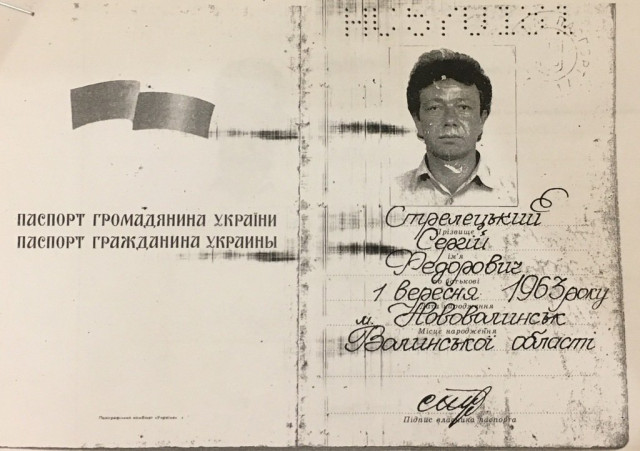 ПАСПОРТ ГРОМАДЯНИНА УКРАЇНИ
ПАСПОРТ ГРАЖДАНИНА УКРАИНЫ
Стрелецький
Прізвище
Сергій
ім'я
Федорович
по батькові
1 вересня 1963 року
Дата народження
м. Нововолинськ
Місце народження
Волинської області
Підпис власника паспорта